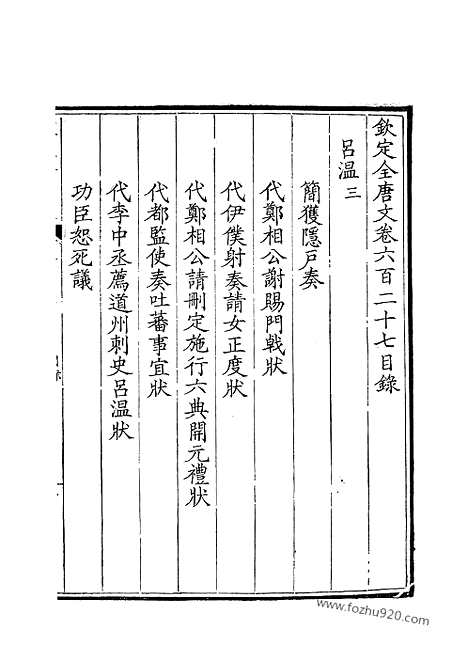 欽定全唐文卷六百二十七目錄
呂溫三
簡獲隱戶奏
代鄭相公謝賜門戟狀
代伊僕射奏請女正度狀
代鄭相公請刪定施行六典開元禮狀
代都監使奏吐蕃事宜狀
代李中丞薦道州刺史呂溫狀
功臣恕死議
www.fozhu920.com